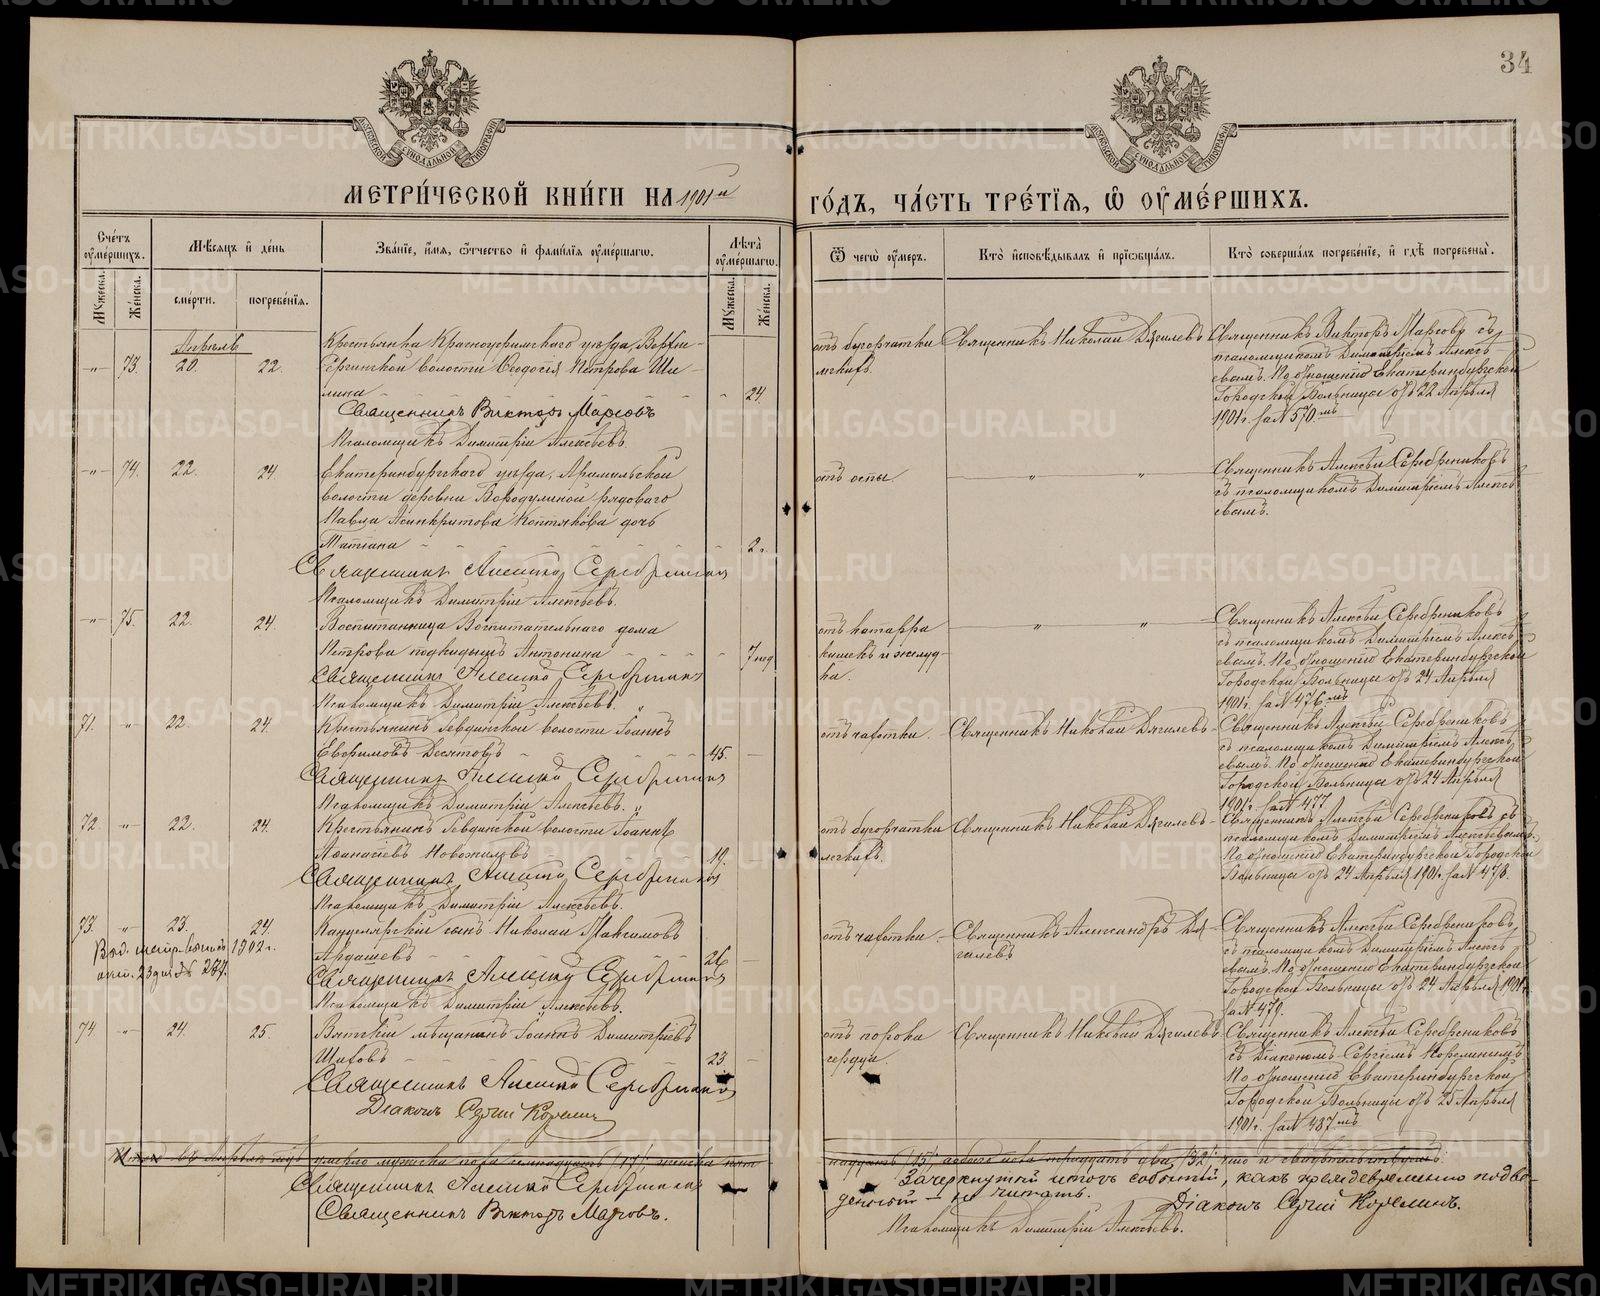 34
МЕТРИ́ЧЕСКОЙ КНИ́ГИ НА 1901й
ГО́ДЪ, ЧА́СТЬ ТРЕ́ТІѦ, Ѡ ОУ҆МЕ́РШИХЪ.
Сче́тъ оу҆ме́ршихъ.
Мꙋжеска.
Же́нска.
Мѣсѧцъ и҆ де́нь
сме́рти.
погребе́нїѧ.
Зва́нїе, и҆́мѧ, ѻ҆́тчество и҆ фами́лїѧ оу҆ме́ршагѡ.
Лѣта̀ оу҆ме́ршагѡ.
Мꙋ́жеска.
Же́нска.
Ѿ чегѡ̀ оу҆́меръ.
Кто̀ и҆сповѣ́дывалъ и҆ прїѡбща́лъ.
Кто̀ соверша́лъ погребе́нїе, и҆ гдѣ̀ погребены̀.
Апрѣль
-„- 73. 20. 22.
Крестьянка Красноуфимскаго уѣзда, Верхне-
Сергинской волости Ѳеодосія Петрова Ши-
лина 24.
Священникъ Викторъ Марсовъ
Псаломщикъ Димитрій Алексѣевъ.
отъ бугорчатки
легкихъ.
Священникъ Николай Дягилевъ
Священникъ Викторъ Марсовъ съ
псаломщикомъ Димитріемъ Алексѣ-
евымъ. По отношенію Екатеринбургской
Городской Больницы отъ 22 Апрѣля
1901 г. за № 570мъ
-„- 74. 22. 24.
Екатеринбургскаго уѣзда, Арамильской
волости деревни Бородулиной рядоваго
Павла Асинкритова Коптякова дочь
Татіана 2 г.
Священникъ Алексѣй Серебренниковъ
Псаломщикъ Димитрій Алексѣевъ.
отъ оспы
„ „
Священникъ Алексѣй Серебрениковъ
съ псаломщикомъ Димитріемъ Алексѣ-
евымъ.
-„- 75. 22. 24.
Воспитанница Воспитательнаго дома
Петрова подкидышъ Антонина 7 нед.
Священникъ Алексѣй Серебренниковъ
Псаломщикъ Димитрій Алексѣевъ.
отъ катарра
кишекъ и желуд-
ка.
„ „
Священникъ Алексѣй Серебрениковъ
съ псаломщикомъ Димитріемъ Алексѣ-
евымъ. По отношенію Екатеринбургской
Городской Больницы отъ 24 Апрѣля
1901 г. за № 476мъ
71. „ 22. 24.
Крестьянинъ Ревдинской волости Іоаннъ
Евфимовъ Десятовъ 45.
Священникъ Алексѣй Серебренниковъ
Псаломщикъ Димитрій Алексѣевъ.
отъ чахотки.
Священникъ Николай Дягилевъ
Священникъ Алексѣй Серебрениковъ
съ псаломщикомъ Димитріемъ Алексѣ-
евымъ. По отношенію Екатеринбургской
Городской Больницы отъ 24 Апрѣля
1901 г. за № 477.
72. -„- 22. 24.
Крестьянинъ Ревдинской волости Іоаннъ
Аѳанасіевъ Новожиловъ 19.
Священникъ Алексѣй Серебренниковъ
Псаломщикъ Димитрій Алексѣевъ.
отъ бугорчатки
легкихъ.
Священникъ Николай Дягилевъ
Священникъ Алексѣй Серебрениковъ съ
псаломщикомъ Димитріемъ Алексѣевымъ.
По отношенію Екатеринбургской Городской
Больницы отъ 24 Апрѣля 1901 г. за № 478.
73. „ 23. 24.
Выд. метр. выпись 1902 г.
окт. 23 дня за №
Канцелярскій сынъ Николай Максимовъ
Ардашевъ 26
Священникъ Алексѣй Серебренниковъ
Псаломщикъ Димитрій Алексѣевъ.
отъ чахотки
Священникъ Александръ Дя-
гилевъ
Священникъ Алексѣй Серебрениковъ
съ псаломщикомъ Димитріемъ Алексѣ-
евымъ. По отношенію Екатеринбургской
Городской Больницы отъ 24 Апрѣля 1901 г.
за № 479.
74 -„- 24 25.
Вятскій мѣщанинъ Іоаннъ Димитріевъ
Шиховъ 23.
Священникъ Алексѣй Серебренниковъ
Діаконъ Сергій Корелинъ
отъ порока
сердца.
Священникъ Николай Дягилевъ
Священникъ Алексѣй Серебрениковъ
съ Діакономъ Сергіемъ Корелинымъ
По отношенію Екатеринбургской
Городской Больницы отъ 25 Апрѣля
1901 г. за № 487мъ
Итого въ Апрѣлѣ м-цѣ умерло мужеска пола семнадцать /17/ женска пят-
надцать /15/, обоего пола тридцать два /32/ что и свидѣтельствуемъ:
Священникъ Алексѣй Серебренниковъ
Священникъ Викторъ Марсовъ.
Зачеркнутый итогъ событій, какъ преждевременно подве-
денный — не читать. Діаконъ Сергій Корелинъ.
Псаломщикъ Димитрій Алексѣевъ.
METRIKI.GASO-URAL.RU